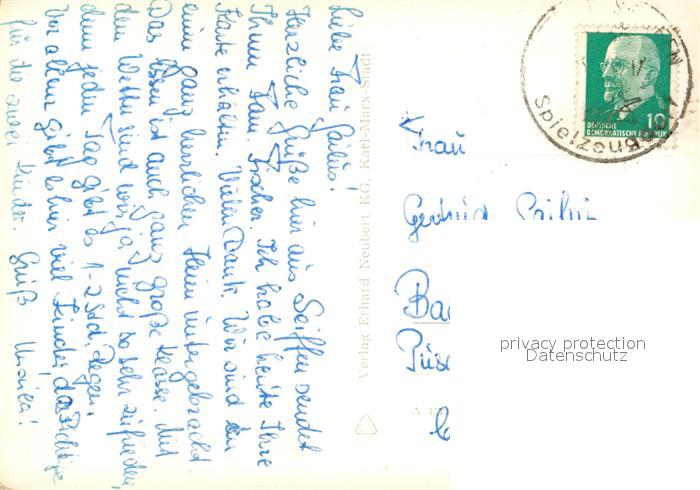 Liebe Frau Pailis!
Herzliche Grüße hier aus Seiffen sendet
Ihnen Fam. Fischer. Ich habe heute Ihre
Karte erhalten. Vielen Dank. Wir sind in
einem ganz herrlichen Heim untergebracht.
Das Essen ist auch ganz große Klasse. Mit
dem Wetter sind wir ja nicht so sehr zufrieden,
denn jeden Tag gibt es 1-2 Std. Regen.
Vor allem gibt es hier viel Kinder,
für die zwei Kinder. Gruß Ursula!
Verlag Erhard Neubert KG, Karl-Marx-Stadt
Frau
Gertrud
DEUTSCHE
DEMOKRATISCHE REPUBLIK
10
privacy protection
Datenschutz